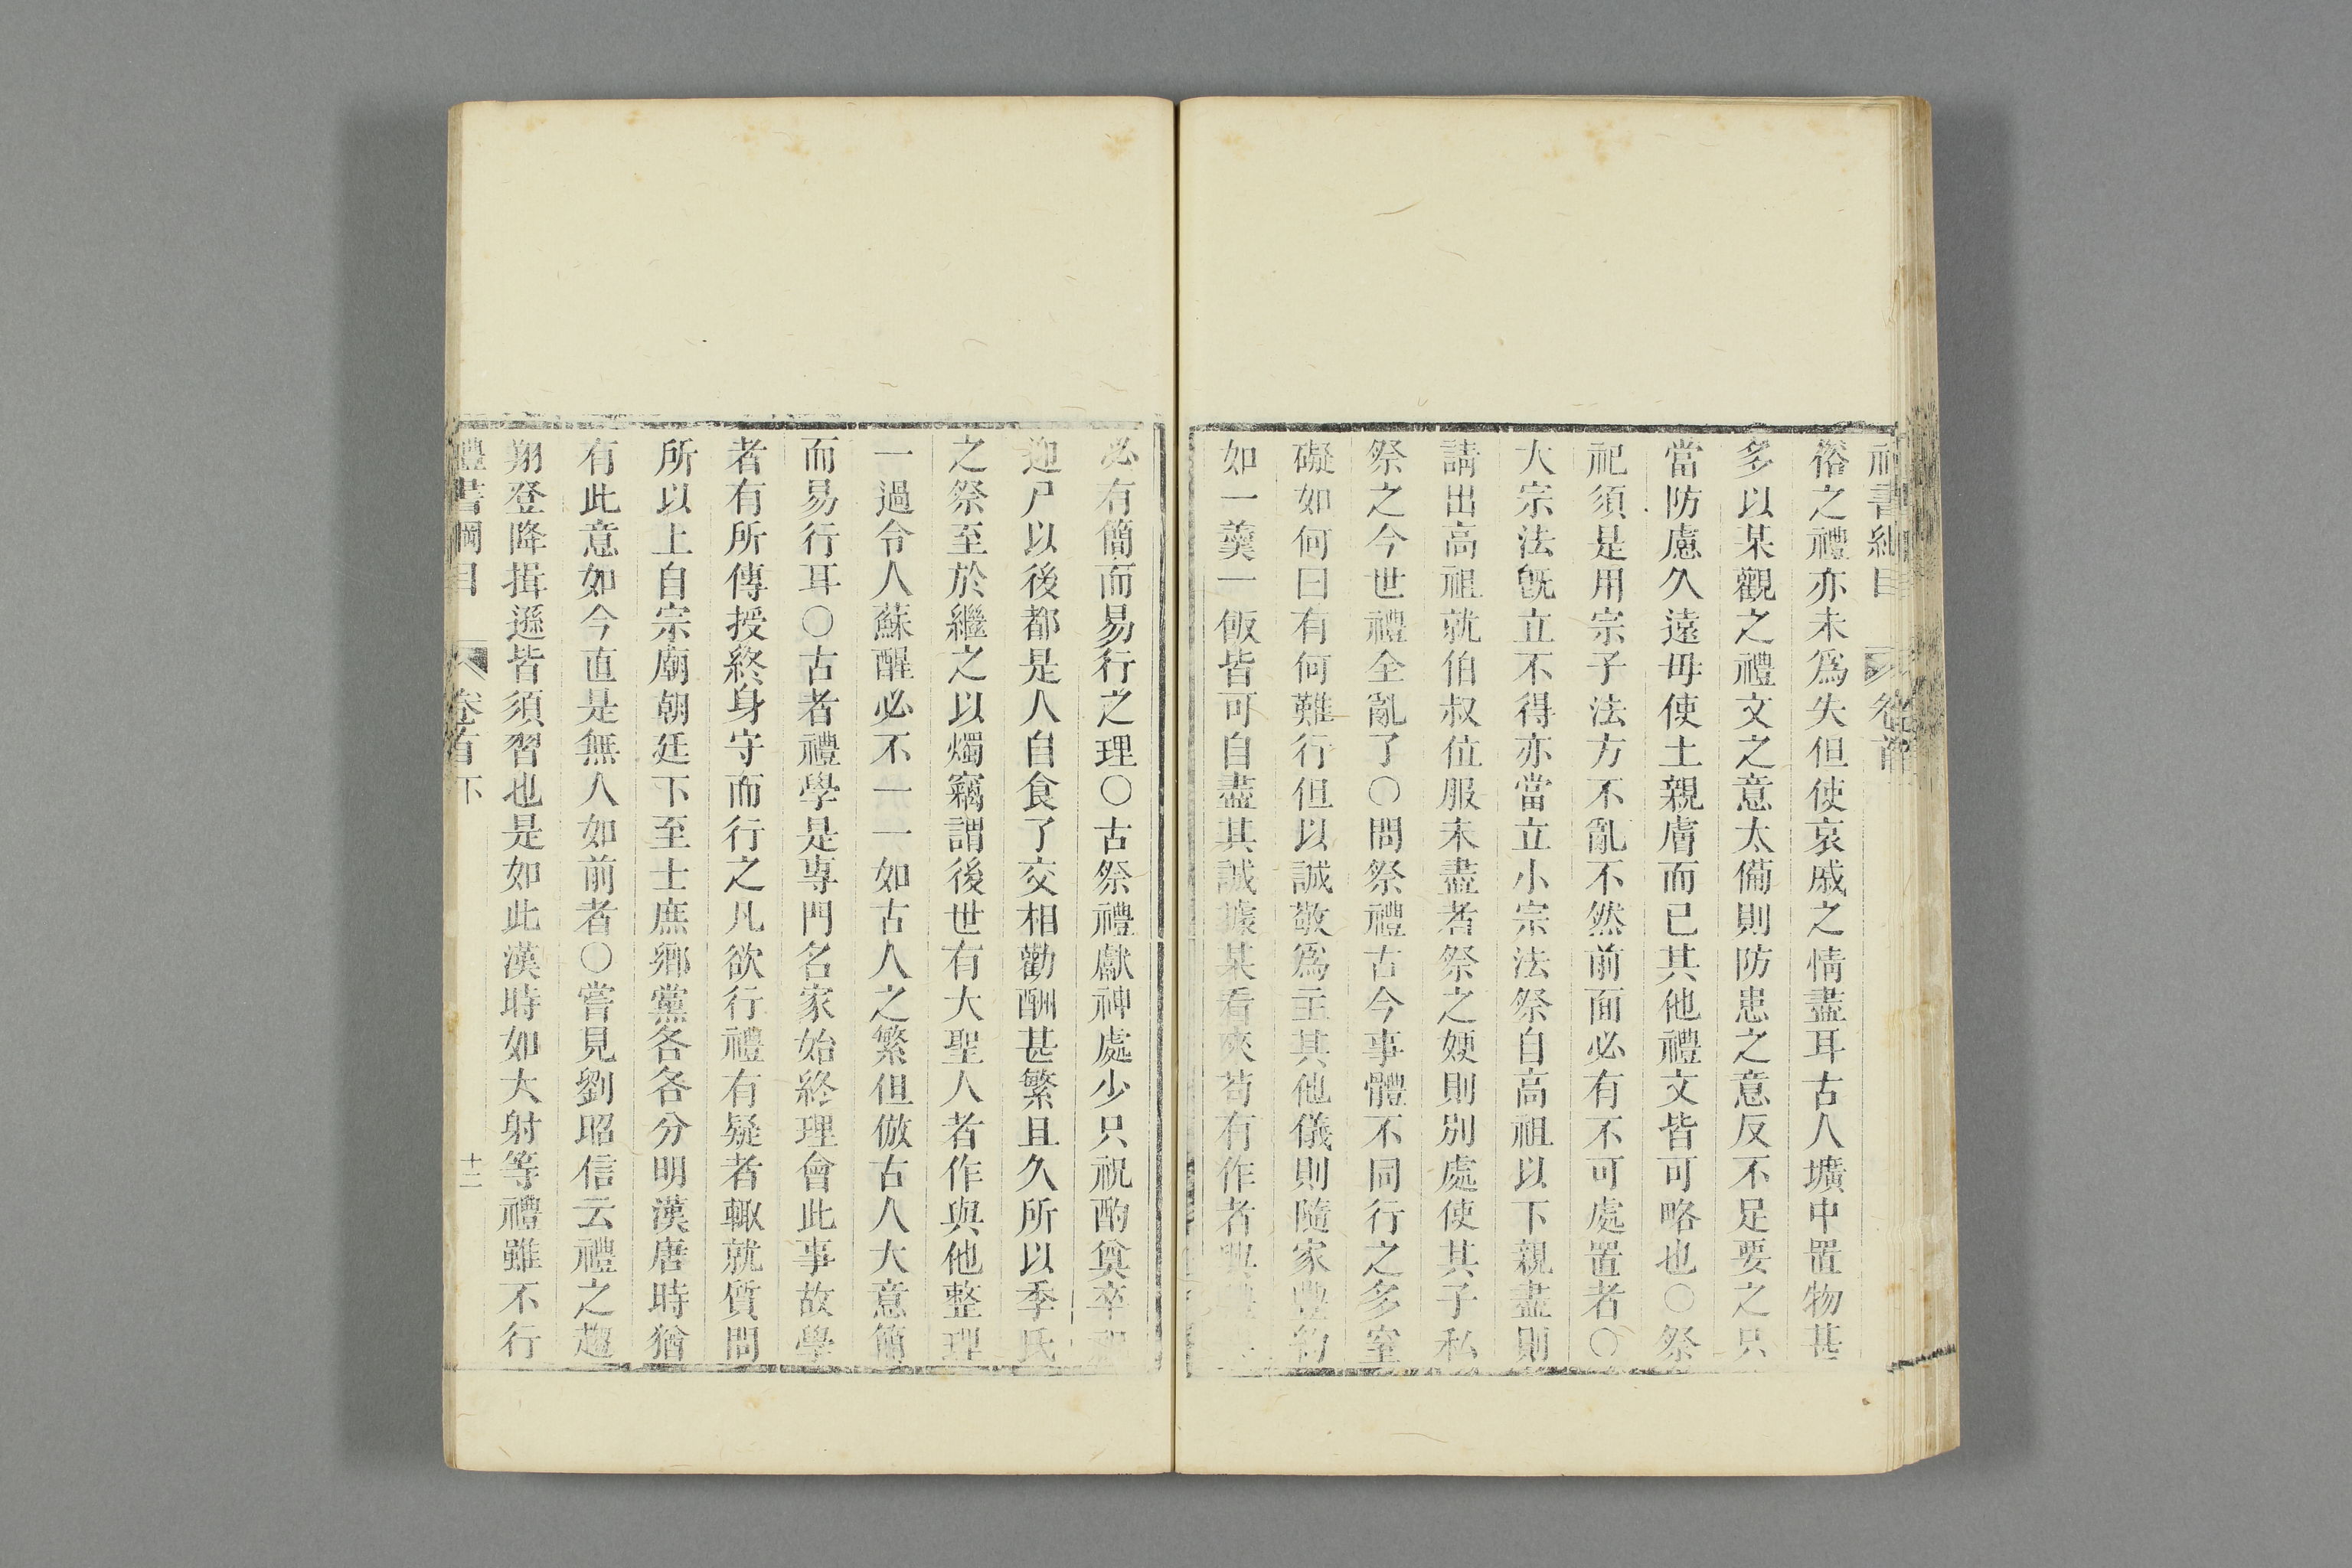 俗之禮亦未爲失但使哀戚之情盡耳古人壙中置物甚
多以某觀之禮文之意太備則防患之意反不足要之只
當防慮久遠毋使土親膚而已其他禮文皆可略也○祭
祀須是用宗子法方不亂不然前面必有不可處置者○
大宗法旣立不得亦當立小宗法祭自高祖以下親盡則
請出高祖就伯叔位服未盡者祭之嫂則別處使其子私
祭之今世禮全亂了○問祭禮古今事體不同行之多窒
礙如何曰有何難行但以誠敬爲主其他儀則隨家豐約
如一羹一飯皆可自盡其誠據某看來苟有作者興禮
必有簡而易行之理○古祭禮獻神處少只祝酌奠卒祝
迎尸以後都是人自食了交相勸酬甚繁且久所以季氏
之祭至於繼之以燭竊謂後世有大聖人者作與他整理
一過令人蘇醒必不一一如古人之繁但倣古人大意簡
而易行耳○古者禮學是專門名家始終理會此事故學
者有所傳授終身守而行之凡欲行禮有疑者輒就質問
所以上自宗廟朝廷下至士庶鄉黨各各分明漢唐時猶
有此意如今直是無人如前者○嘗見劉昭信云禮之趨
翔登降揖遜皆須習也是如此漢時如大射等禮雖不行
禮書綱目 卷首下 十二